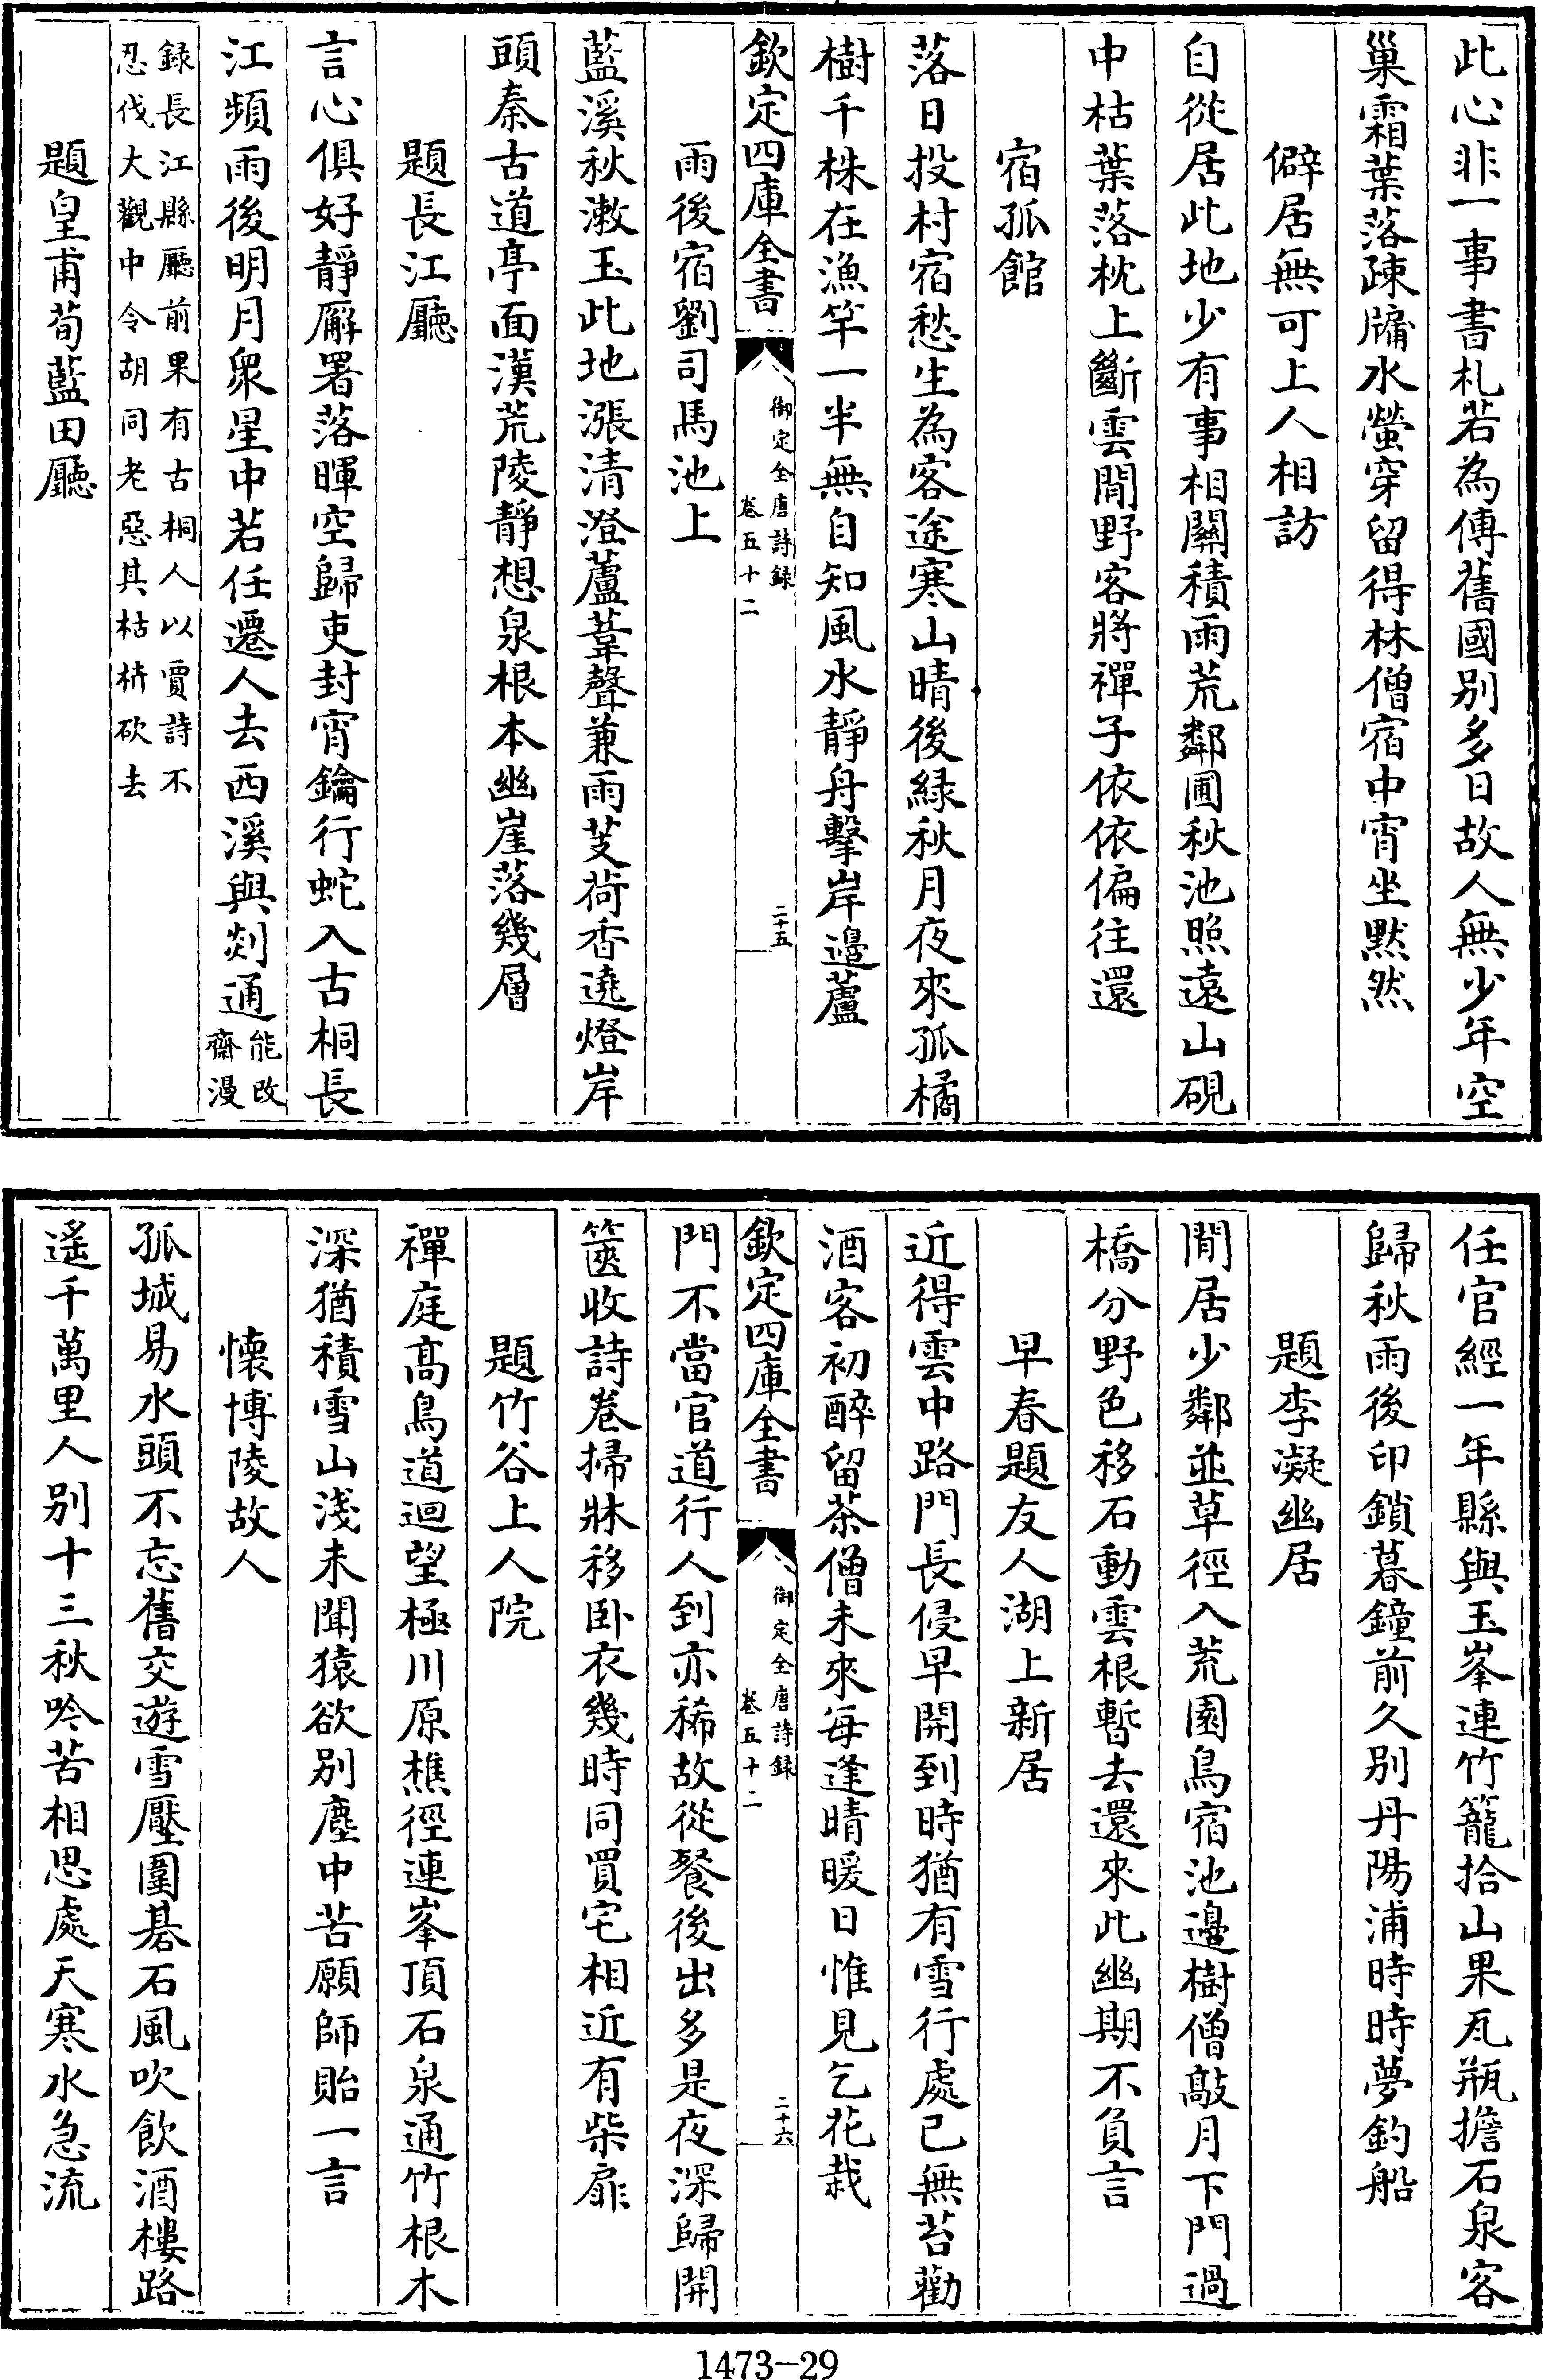 此心非一事書札若為傳舊國别多日故人無少年空
巢霜葉落疎牖水螢穿留得林僧宿中宵坐黙然
僻居無可上人相訪
自從居此地少有事相關積雨荒鄰圃秋池照遠山硯
中枯葉落枕上斷雲閒野客將禪子依依偏往還
宿孤館
落日投村宿愁生為客途寒山晴後緑秋月夜來孤橘
樹千株在漁竿一半無自知風水靜舟擊岸邉蘆
欽定四庫全書
御定全唐詩録
卷五十二
二十五
雨後宿劉司馬池上
藍溪秋漱玉此地漲清澄蘆葦聲兼雨芰荷香遶燈岸
頭秦古道亭面漢荒陵靜想泉根本幽崖落幾層
題長江廳
言心俱好靜廨署落暉空歸吏封宵鑰行蛇入古桐長
江頻雨後明月衆星中若任遷人去西溪與剡通能改
齋漫
録長江縣廳前果有古桐人以賈詩不
忍伐大觀中令胡同老惡其枯枿砍去
題皇甫荀藍田廳
任官經一年縣與玉峯連竹籠拾山果瓦瓶擔石泉客
歸秋雨後印鎖暮鐘前久别丹陽浦時時夢釣船
題李凝幽居
閒居少鄰並草徑入荒園鳥宿池邉樹僧敲月下門過
橋分野色移石動雲根暫去還來此幽期不負言
早春題友人湖上新居
近得雲中路門長侵早開到時猶有雪行處已無苔勸
酒客初醉留茶僧未來每逢晴暖日惟見乞花栽
欽定四庫全書
御定全唐詩録
卷五十二
二十六
門不當官道行人到亦稀故從餐後出多是夜深歸開
篋收詩卷掃牀移卧衣幾時同買宅相近有柴扉
題竹谷上人院
禪庭髙鳥道迴望極川原樵徑連峯頂石泉通竹根木
深猶積雪山淺未聞猿欲别塵中苦願師貽一言
懐博陵故人
孤城易水頭不忘舊交遊雪壓圍碁石風吹飲酒樓路
遥千萬里人别十三秋吟苦相思處天寒水急流
1473-29